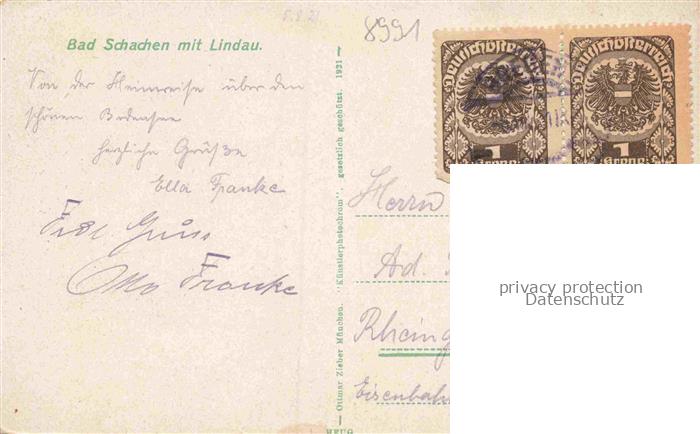 5.8.21
8991
Bad Schachen mit Lindau.
Von der Heimreise über den
schönen Bodensee
herzliche Grüße
Ella Franke
Frdl Gruss
Otto Franke
Ottmar Zieher München. "Künstlerphotochrom", gesetzlich geschützt. 1921
Deutschösterreich
1
Deutschösterreich
1
Herrn
Ad.
Rheing
Eisenbahn
privacy protection
Datenschutz